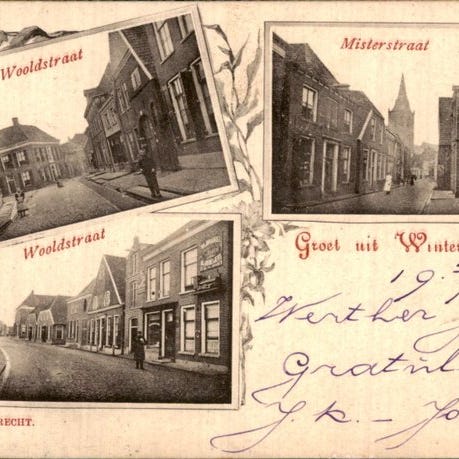 Wooldstraat
Misterstraat
Wooldstraat
Groet uit Winter
19.
Werther
Gratul
J. k. - Jo
RECHT.